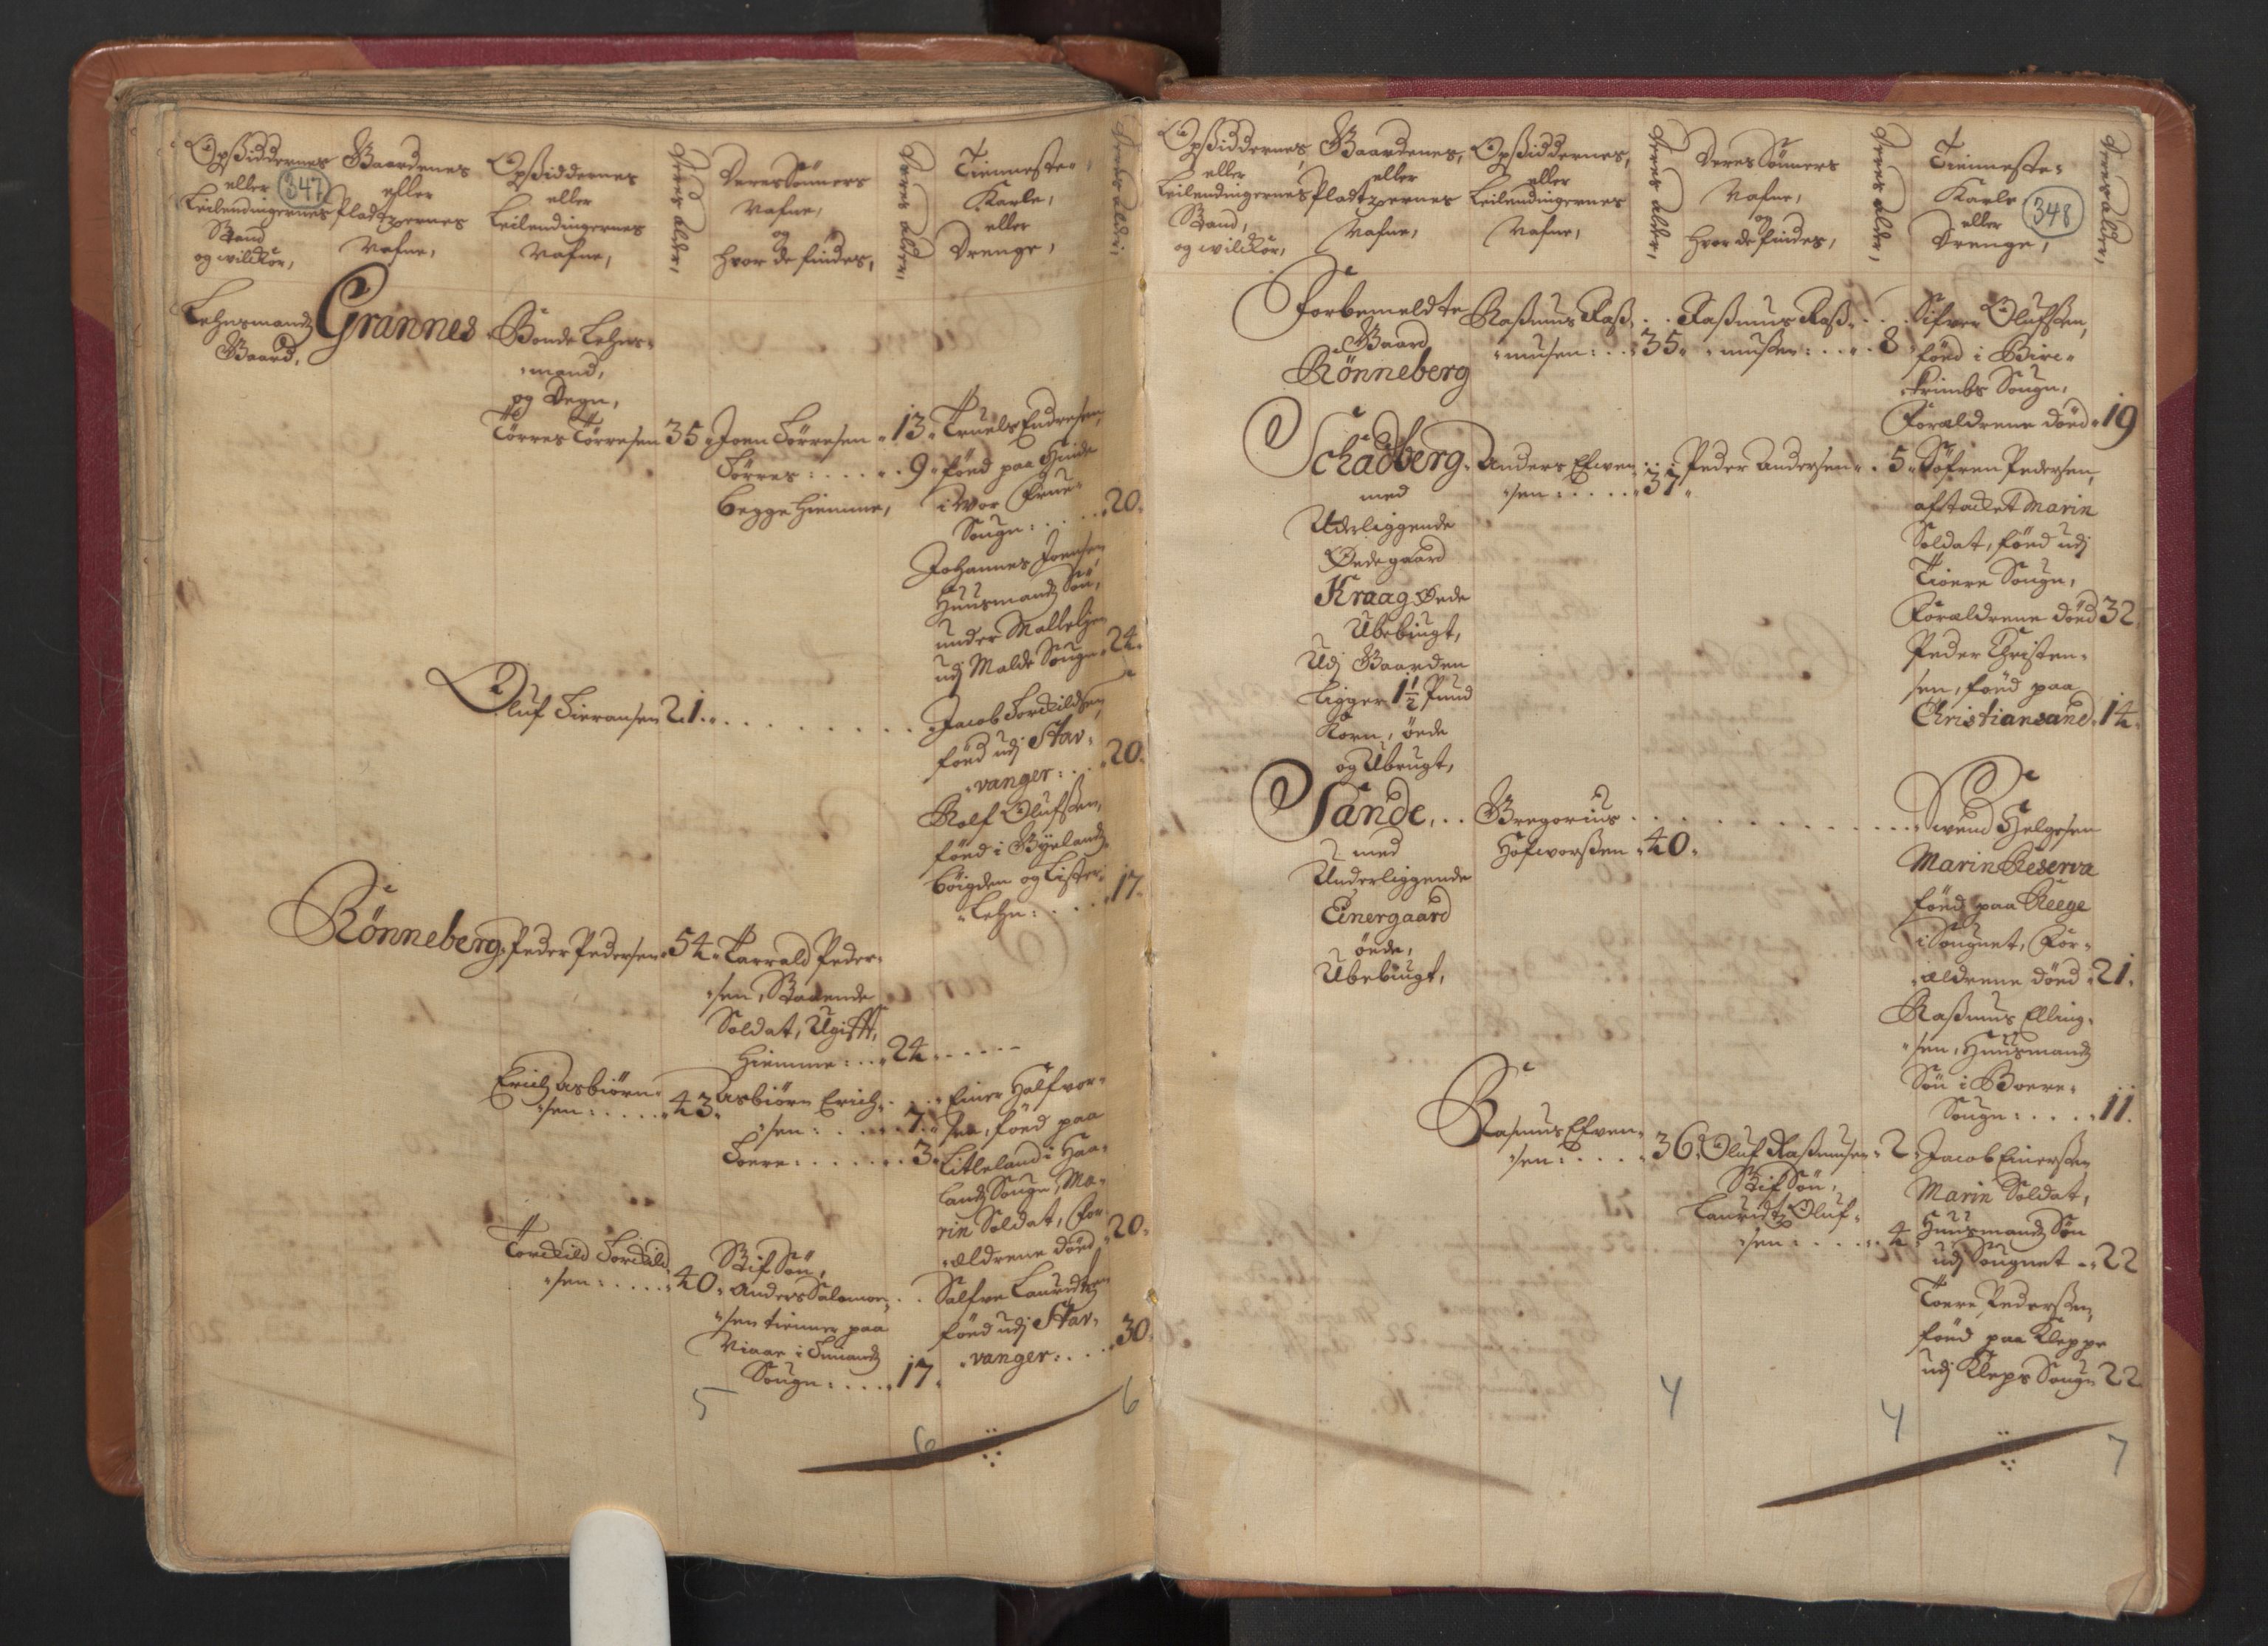 Opsiddernes
eller
Leilendingernes
Stand
og wilckor,
347
Gaardenes
eller
Pladtzernes
Nafne,
Opsiddernes
eller
Leilendingernes
Nafne,
Deres alder,
Deres Sønners
Nafne,
og
hvor de findes,
Deres alder,
Tienneste-
Karle,
eller
Drenge,
Deres alder,
Lehnsmandz
Gaard,
Grannes
Bonde Lehns-
mand,
og Degn,
Tørres Tørresen 35
Joen Tørresen 13
Tørres: 9
begge hiemme,
Truels Endresen,
føed paa
i Vor Frue
Sougn: 20
Johannes Joensen
Huusmandz Søn,
under
udj Malde Sougn 24
Oluf 21
Jacob Torckildsen
føed udj Stav-
vanger: 20
Rolf Olufssen,
føed i Byeland
bøigden og Lister
Lehn: 17
Rønneberg
Peder Pedersen 54
Tarrald Peder-
sen, Staaende
Soldat, Ugift,
hiemme: 24
Erich Asbiørn-
sen: 43
Asbiørn Erich-
sen: 7
Toere: 3
Einer Halfvor-
sen, føed paa
Litleland i Haa-
landz Sougn, Ma-
rin Soldat, For-
ældrene døed 20
Torckild Torckild-
sen: 40
Stif Søn,
Anders Salomon-
sen tienner paa
Viaar i
Sougn: 17
Salfve Lauridtzen
føed udj Stav-
vanger: 30
5
6
6
Opsiddernes,
eller
Leilendingernes
Stand,
og wilckor,
Gaardenes,
eller
Pladtzernes
Nafne,
Opsiddernes,
eller
Leilendingernes
Nafne,
Deres alder,
Deres Sønners
Nafne,
og
hvor de findes,
Deres alder,
Tienneste-
Karle
eller
Drenge,
348
Deres alder,
Forbemeldte
Gaard
Rønneberg
Rasmus Rass-
musen: 35
Rasmus Rass-
mussen: 8
Sifver Olufssen,
føed i Birc-
krimbs Sougn,
Forældrene døed 19
Schadberg
med
Underliggende
Ødegaard
Kraag Øede
Ubebiugt,
Udj Gaarden
ligger 1 1/2 Pund
Korn, øede
og Ubrugt,
Anders Efven-
sen: 37
Peder Andersen 5
Søfren Pedersen,
aftacket Marin
Soldat, føed udj
Tioere Sougn,
Forældrene døed 32
Peder Christen-
sen, føed paa
Christiansand 14
Sande
med
Underliggende
Einergaard
øede,
Ubebiugt,
Gregorius
Hofworssen 40
Swend Helgesen
Marin Reserve
føed paa Reege
i Sougnet, For-
ældrene døed 21
Rasmus Elling-
sen, Huusmandz
Søn i Boere-
Sougn: 11
Rasmus Efven-
sen: 36
Oluf Rasmusen 2
Stif Søn,
Lauridtz Oluf-
sen: 4
Jacob Einerssen
Marin Soldat,
Huusmandz Søn
udj Sougnet 22
Toere Pederssen,
føed paa Kleppe
udj Kleps Sougn 22
4
4
7